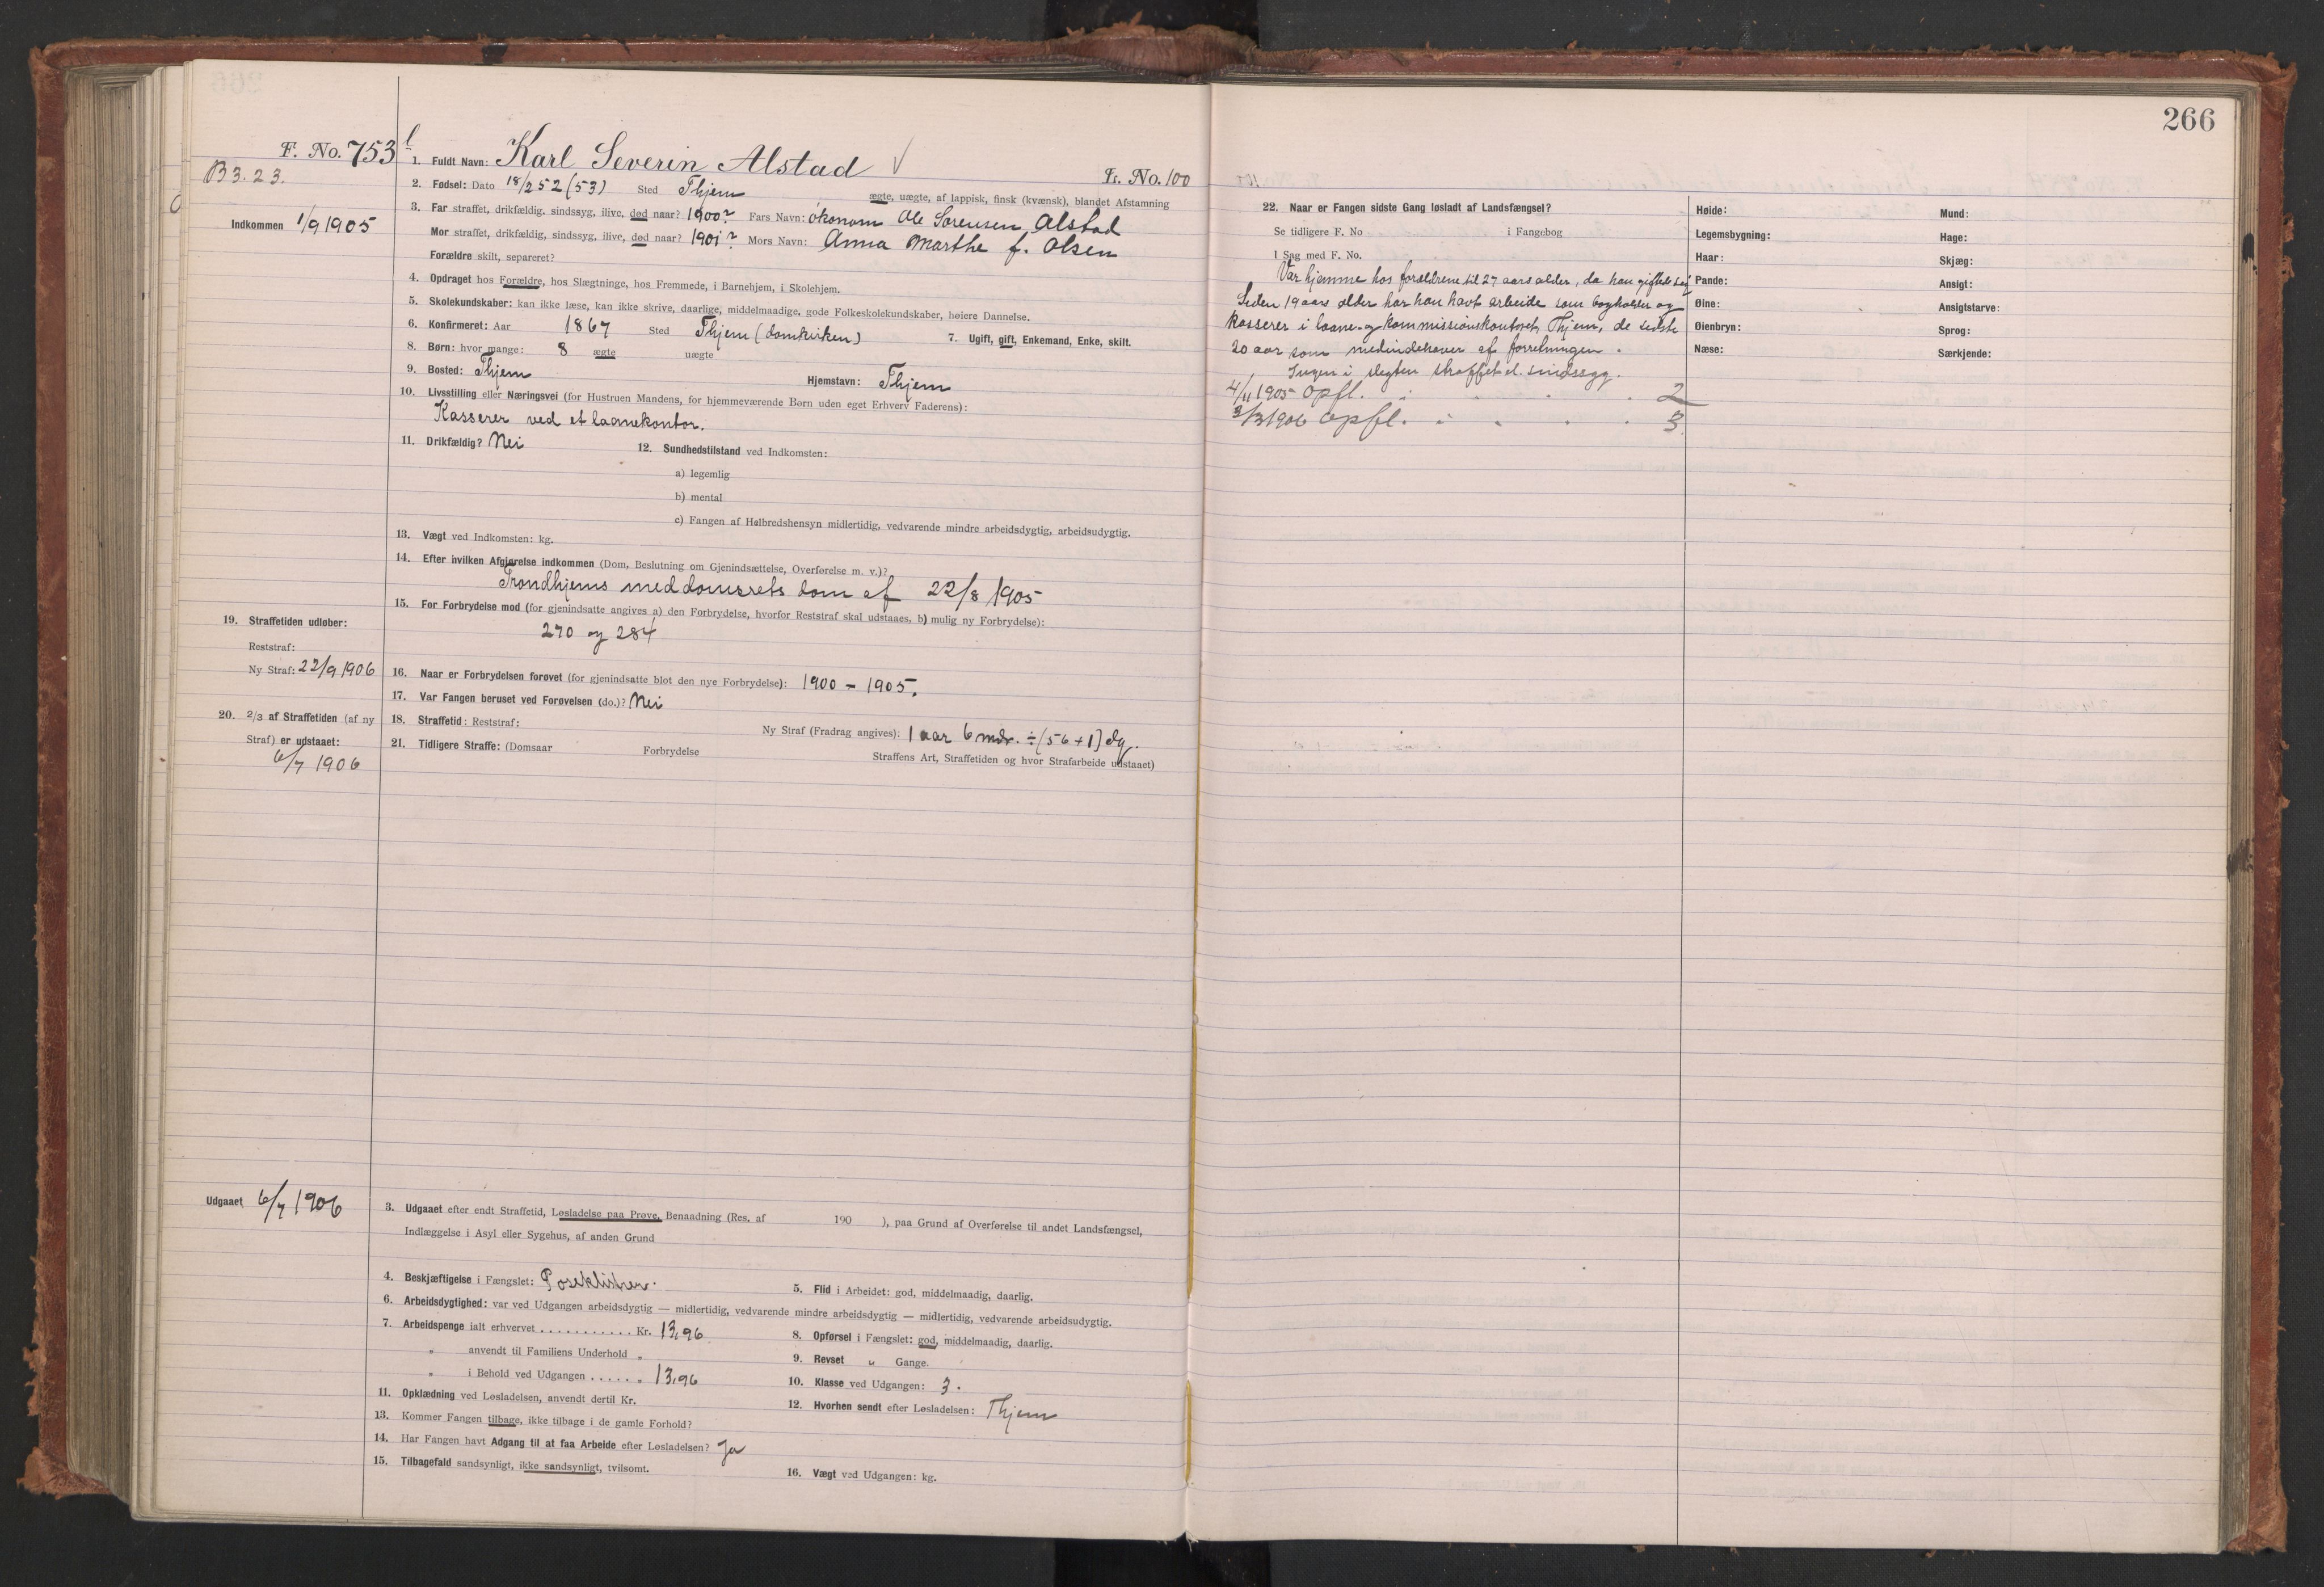 F. No. 753 l
B 3. 23.
Indkommen 1/9 1905
1. Fuldt Navn: Karl Severin Alstad
Fr. No. 100
2. Fødsel: Dato 18/2 52 (53) Sted Thjem ægte, uægte, af lappisk, finsk (kvænsk), blandet Afstamning
3. Far straffet, drikfældig, sindssyg, ilive, død naar? 1900? Fars Navn: økonom Ole Sørensen Alstad
Mor straffet, drikfældig, sindssyg, ilive, død naar? 1901? Mors Navn: Anna Marthe f. Olsen
Forældre skilt, separeret?
4. Opdraget hos Forældre, hos Slægtninge, hos Fremmede, i Barnehjem, i Skolehjem.
5. Skolekundskaber: kan ikke læse, kan ikke skrive, daarlige, middelmaadige, gode Folkeskolekundskaber, høiere Dannelse.
6. Konfirmeret: Aar 1867 Sted Thjem (domkirken) 7. Ugift, gift, Enkemand, Enke, skilt.
8. Børn: hvor mange: 8 ægte uægte
9. Bosted: Thjem Hjemstavn: Thjem
10. Livsstilling eller Næringsvei (for Hustruen Mandens, for hjemmeværende Børn uden eget Erhverv Faderens):
Kasserer ved et laanekontor.
11. Drikfældig? Nei 12. Sundhedstilstand ved Indkomsten:
a) legemlig
b) mental
c) Fangen af Helbredshensyn midlertidig, vedvarende mindre arbeidsdygtig, arbeidsudygtig.
13. Vægt ved Indkomsten: kg.
14. Efter hvilken Afgjørelse indkommen (Dom, Beslutning om Gjenindsættelse, Overførelse m. v.)?
Trondhjems meddomsrets dom af 22/8 1905
15. For Forbrydelse mod (for gjenindsatte angives a) den Forbrydelse, hvorfor Reststraf skal udstaaes, b) mulig ny Forbrydelse):
270 og 284
19. Straffetiden udløber:
Reststraf:
Ny Straf: 22/9 1906
16. Naar er Forbrydelsen forøvet (for gjenindsatte blot den nye Forbrydelse): 1900 – 1905.
17. Var Fangen beruset ved Forøvelsen (do.)? Nei
20. 2/3 af Straffetiden (af ny
Straf) er udstaaet:
6/7 1906
18. Straffetid: Reststraf: Ny Straf (Fradrag angives): 1 aar 6 mdr. ÷ (56 + 1) dg.
21. Tidligere Straffe: (Domsaar Forbrydelse Straffens Art, Straffetiden og hvor Strafarbeide udstaaet)
Udgaaet 6/7 1906
3. Udgaaet efter endt Straffetid, Løsladelse paa Prøve, Benaadning (Res. af 190 ), paa Grund af Overførelse til andet Landsfængsel,
Indlæggelse i Asyl eller Sygehus, af anden Grund
4. Beskjæftigelse i Fængslet: Poseklistrer. 5. Flid i Arbeidet: god, middelmaadig, daarlig.
6. Arbeidsdygtighed: var ved Udgangen arbeidsdygtig — midlertidig, vedvarende mindre arbeidsdygtig — midlertidig, vedvarende arbeidsudygtig.
7. Arbeidspenge ialt erhvervet . . . . . . . . . . . Kr. 13,96 8. Opførsel i Fængslet: god, middelmaadig, daarlig.
" anvendt til Familiens Underhold " 9. Revset " Gange.
" i Behold ved Udgangen . . . . . . " 13,96 10. Klasse ved Udgangen: 3.
11. Opklædning ved Løsladelsen, anvendt dertil Kr. 12. Hvorhen sendt efter Løsladelsen: Thjem
13. Kommer Fangen tilbage, ikke tilbage i de gamle Forhold?
14. Har Fangen havt Adgang til at faa Arbeide efter Løsladelsen? Ja
15. Tilbagefald sandsynligt, ikke sandsynligt, tvilsomt. 16. Vægt ved Udgangen: kg.
266
22. Naar er Fangen sidste Gang løsladt af Landsfængsel?
Se tidligere F. No i Fangebog
I Sag med F. No.
Var hjemme hos forældrene til 27 aars alder, da han giftede sig
Siden 19 aars alder har han havt arbeide som bogholder og
kasserer i laane- og kommissionskontoret, Thjem, de sidste
20 aar som medindehaver af forretningen.
Ingen i slegten straffet el. sindssyg.
4/11 1905 opfl. i . . . 2
3/3 1906 opfl. i . . . 3
Høide: Mund:
Legemsbygning: Hage:
Haar: Skjæg:
Pande: Ansigt:
Øine: Ansigtstarve:
Øienbryn: Sprog:
Næse: Særkjende: